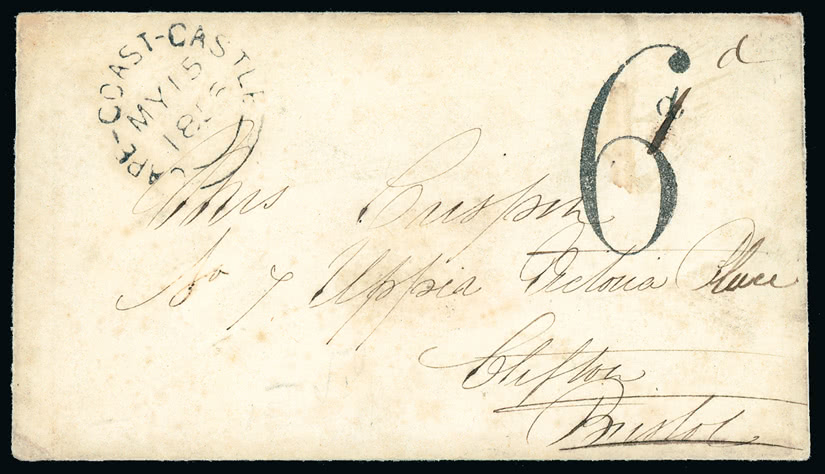 CAPE-COAST-CASTLE
MY 15
18
6d
d
Mrs Crispin
No 7 Uppia Victoria Place
Clifton
Bristol